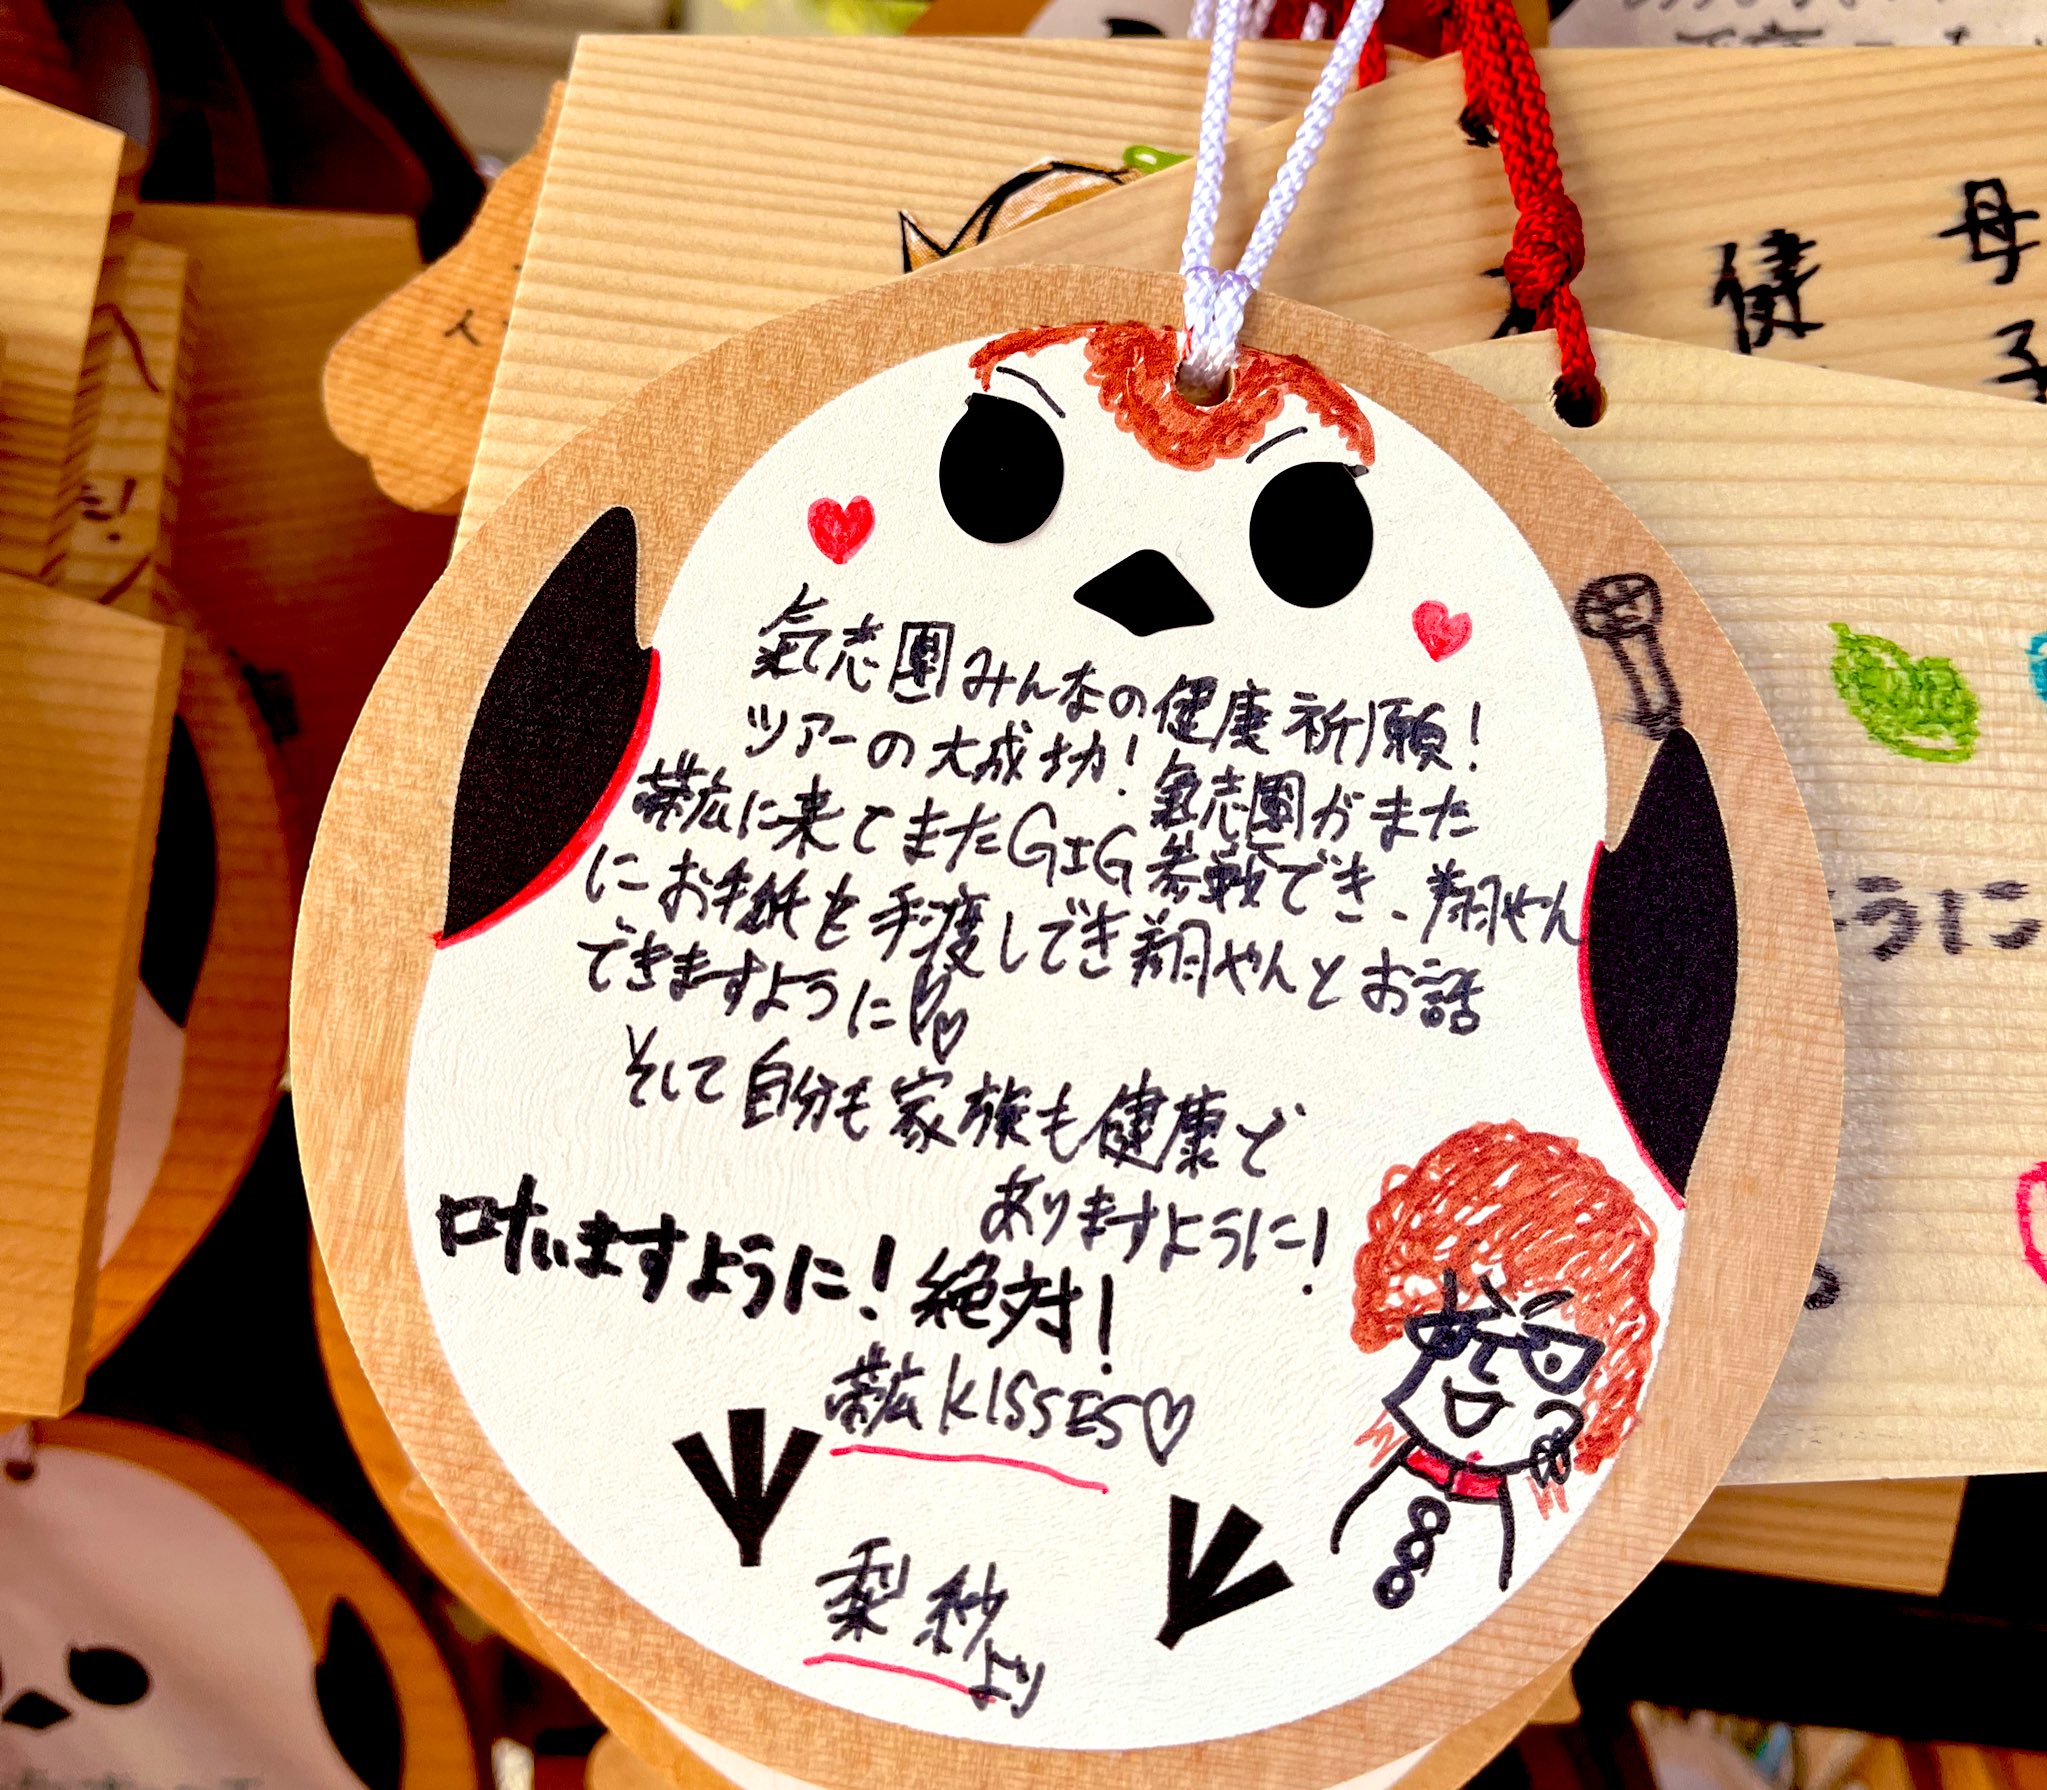 氣志團みんなの健康祈願!
ツアーの大成功!氣志團がまた
帯広に来てまたGIG参戦でき、翔やん
にお手紙を手渡しでき翔やんとお話
できますように♡
そして自分も家族も健康で
ありますように!
叶いますように!絶対!
帯広KISSES♡
梨紗より
母子
健
ように